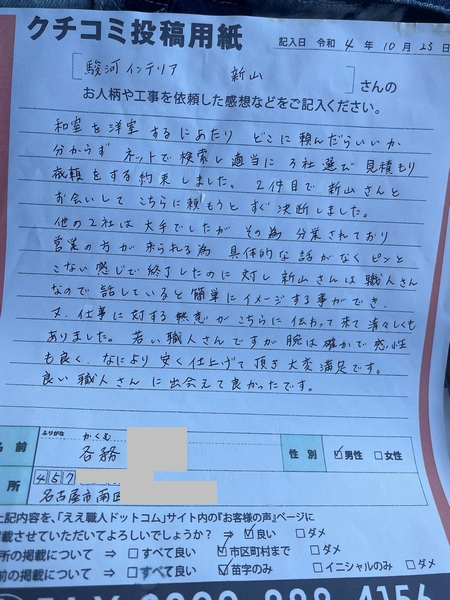 クチコミ投稿用紙
記入日 令和 4 年 10月 25日
駿河インテリア 新山 さんの
お人柄や工事を依頼した感想などをご記入ください。
和室を洋室するにあたり どこに頼んだらいいか
分からず ネットで検索し適当に3社選び 見積もり
依頼をする約束しました。2件目で 新山さんと
お会いして こちらに頼もうと すぐ 決断しました。
他の2社は大手でしたが その為 分業されており
営業の方が来られる為 具体的な話がなく ピンと
こない感じで終了したのに対し 新山さんは職人さん
なので 話していると簡単にイメージする事ができ、
又、仕事に対する熱意がこちらに伝わって来て清々しくも
ありました。若い職人さんですが 腕は確かで 感性
も良く、なにより 安く仕上げて頂き大変満足です。
良い職人さんに出会えて良かったです。
ふりがな かくむ
名 前 各務 性 別 ☑男性 □女性
所 457
名古屋市南区
上記内容を、「ええ職人ドットコム」サイト内の『お客様の声』ページに
掲載させていただいてよろしいでしょうか? ⇒ ☑良い □ダメ
所の掲載について ⇒ □すべて良い ☑市区町村まで □ダメ
前の掲載について ⇒ □すべて良い ☑苗字のみ □イニシャルのみ □ダメ